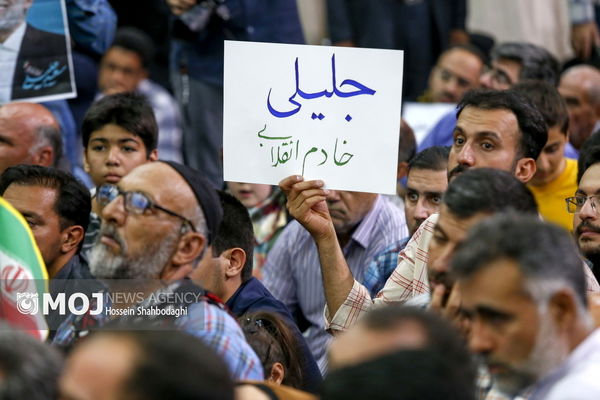 جلیلی
خادم انقلابی
MOJ NEWS AGENCY
Hossein Shahbodaghi